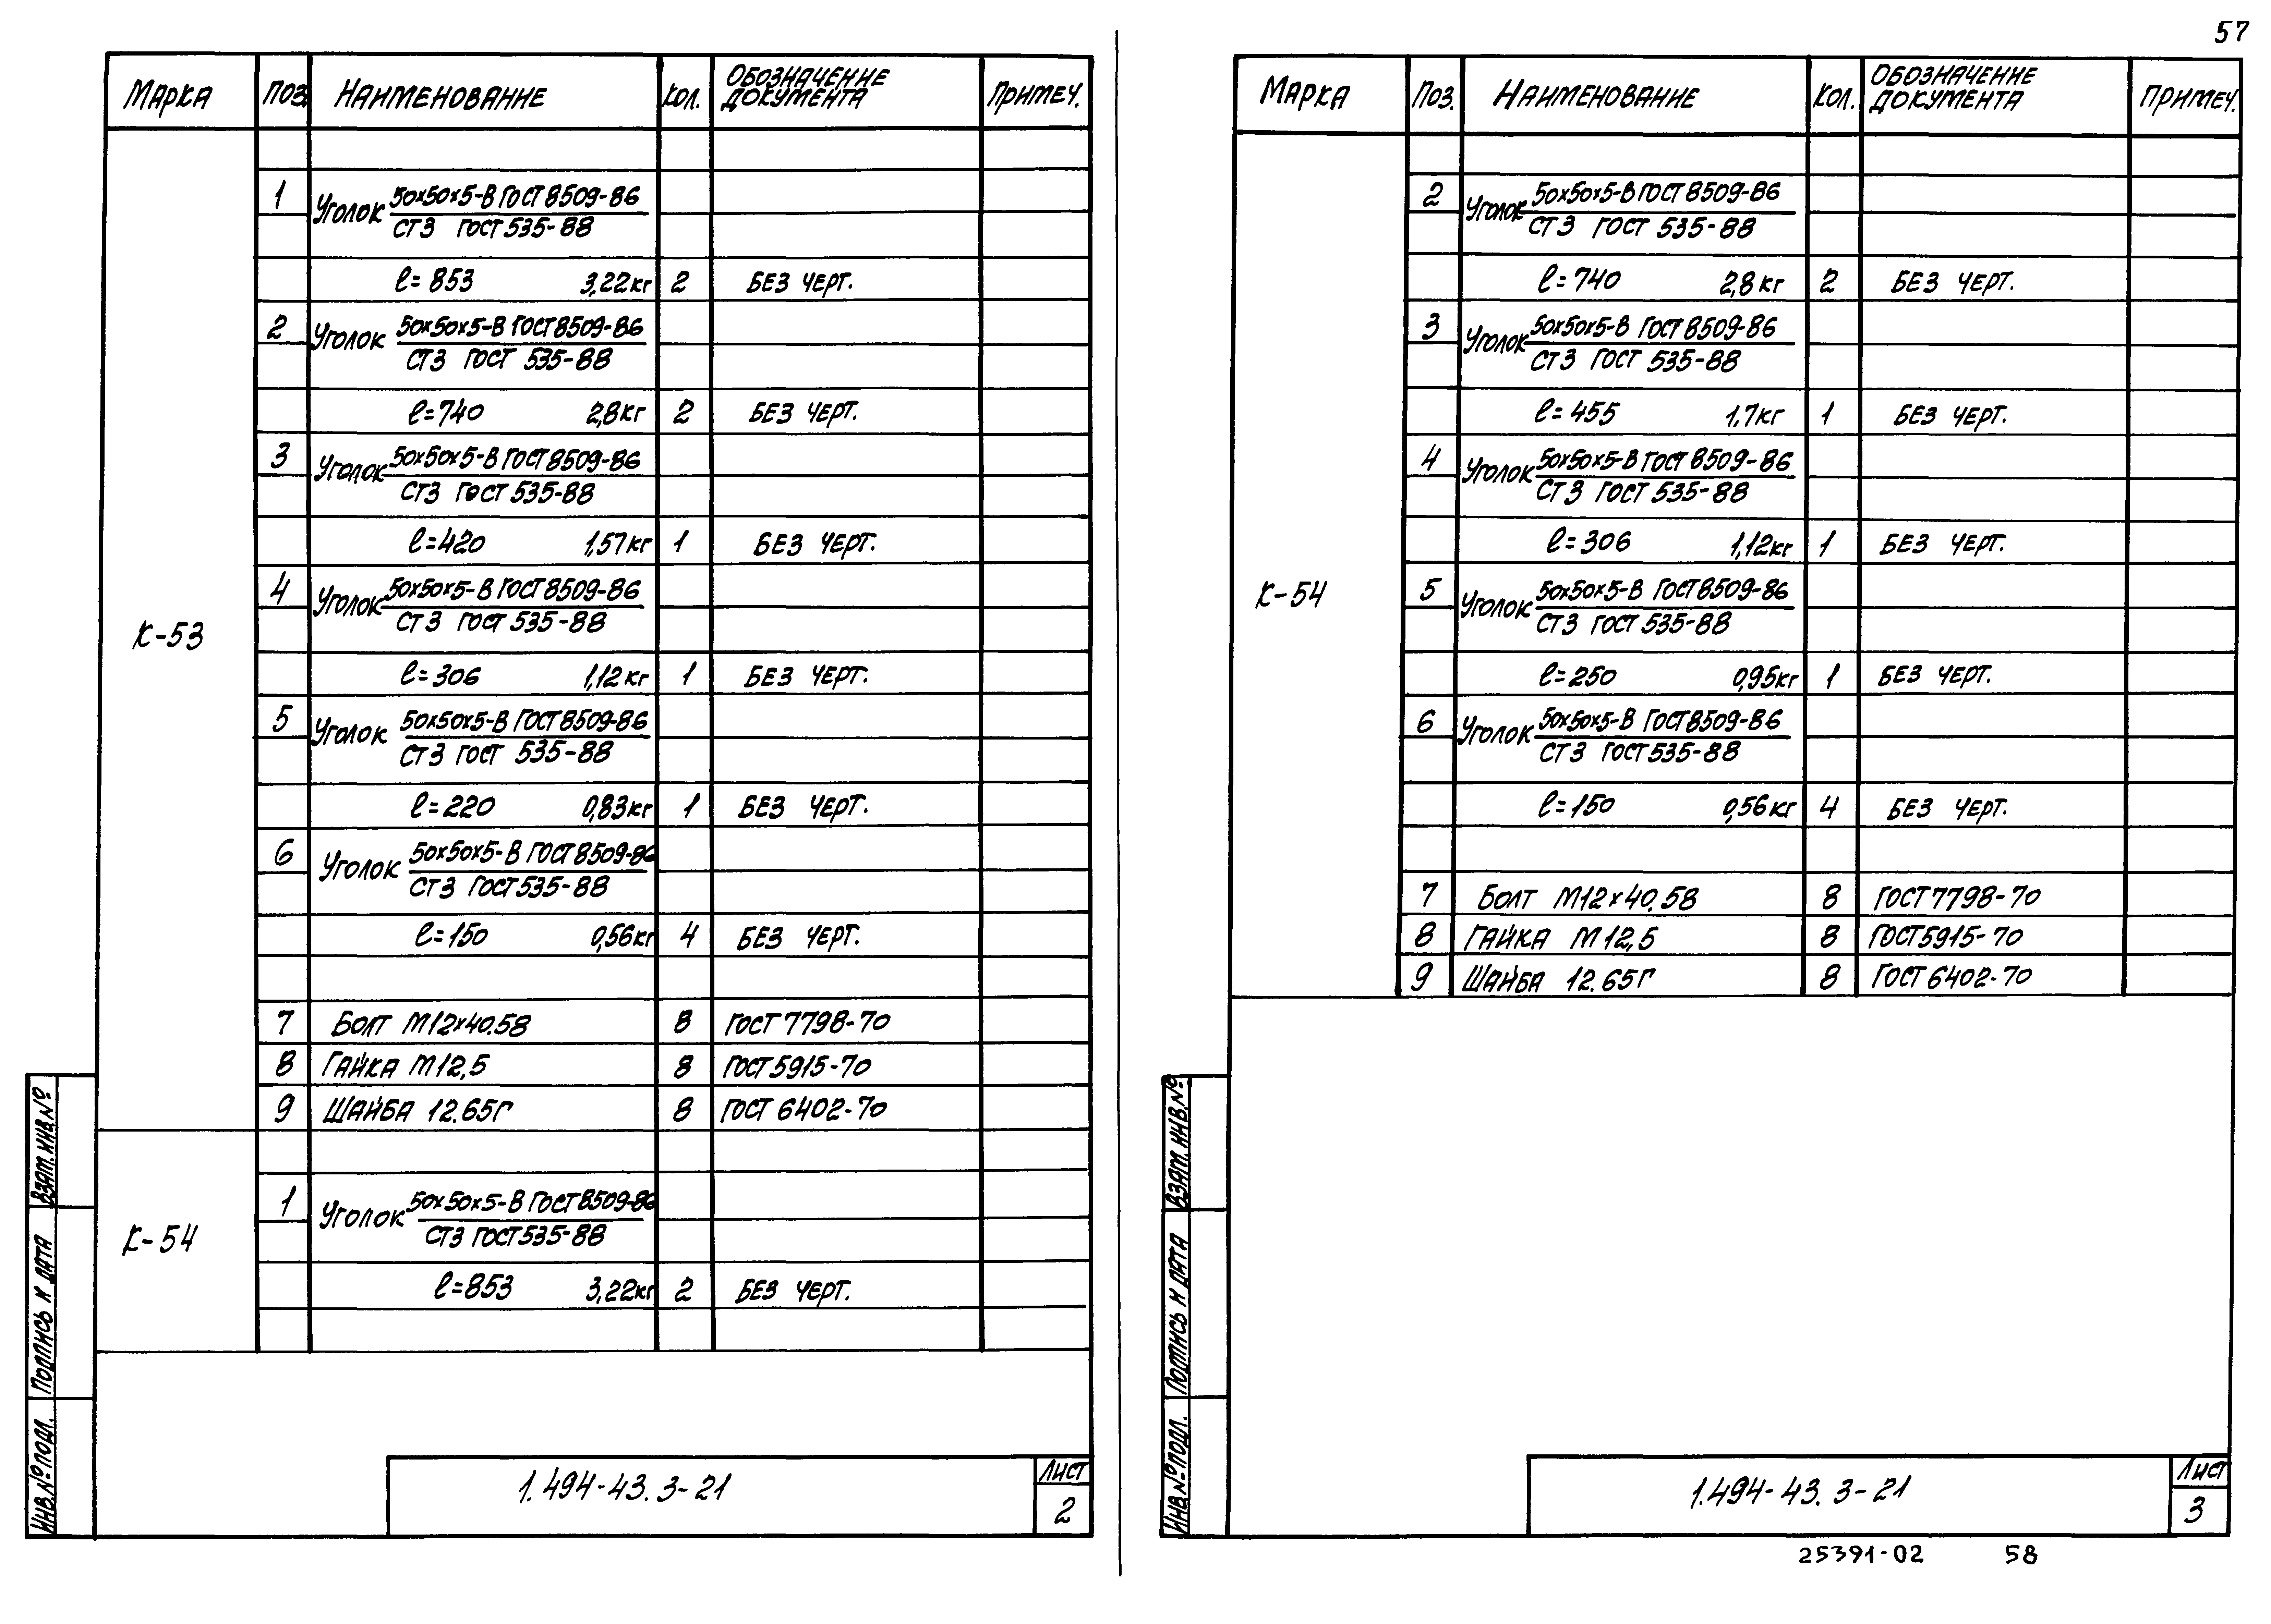 57
Марка Поз. Наименование Кол. Обозначение документа Примеч.
К-53
1 Уголок 50х50х5-В ГОСТ 8509-86
Ст3 ГОСТ 535-88
ℓ=853 3,22кг 2 Без черт.
2 Уголок 50х50х5-В ГОСТ 8509-86
Ст3 ГОСТ 535-88
ℓ=740 2,8кг 2 Без черт.
3 Уголок 50х50х5-В ГОСТ 8509-86
Ст3 ГОСТ 535-88
ℓ=420 1,57кг 1 Без черт.
4 Уголок 50х50х5-В ГОСТ 8509-86
Ст3 ГОСТ 535-88
ℓ=306 1,12кг 1 Без черт.
5 Уголок 50х50х5-В ГОСТ 8509-86
Ст3 ГОСТ 535-88
ℓ=220 0,83кг 1 Без черт.
6 Уголок 50х50х5-В ГОСТ 8509-86
Ст3 ГОСТ 535-88
ℓ=150 0,56кг 4 Без черт.
7 Болт М12х40.58 8 ГОСТ 7798-70
8 Гайка М12,5 8 ГОСТ 5915-70
9 Шайба 12.65Г 8 ГОСТ 6402-70
К-54
1 Уголок 50х50х5-В ГОСТ 8509-86
Ст3 ГОСТ 535-88
ℓ=853 3,22кг 2 Без черт.
Инв.№ подл. Подпись и дата Взам.инв.№
1.494-43.3-21
Лист
2
Марка Поз. Наименование Кол. Обозначение документа Примеч.
К-54
2 Уголок 50х50х5-В ГОСТ 8509-86
Ст3 ГОСТ 535-88
ℓ=740 2,8кг 2 Без черт.
3 Уголок 50х50х5-В ГОСТ 8509-86
Ст3 ГОСТ 535-88
ℓ=455 1,7кг 1 Без черт.
4 Уголок 50х50х5-В ГОСТ 8509-86
Ст3 ГОСТ 535-88
ℓ=306 1,12кг 1 Без черт.
5 Уголок 50х50х5-В ГОСТ 8509-86
Ст3 ГОСТ 535-88
ℓ=250 0,95кг 1 Без черт.
6 Уголок 50х50х5-В ГОСТ 8509-86
Ст3 ГОСТ 535-88
ℓ=150 0,56кг 4 Без черт.
7 Болт М12х40.58 8 ГОСТ 7798-70
8 Гайка М12,5 8 ГОСТ 5915-70
9 Шайба 12.65Г 8 ГОСТ 6402-70
Инв.№ подл. Подпись и дата Взам.инв.№
1.494-43.3-21
Лист
3
25391-02 58